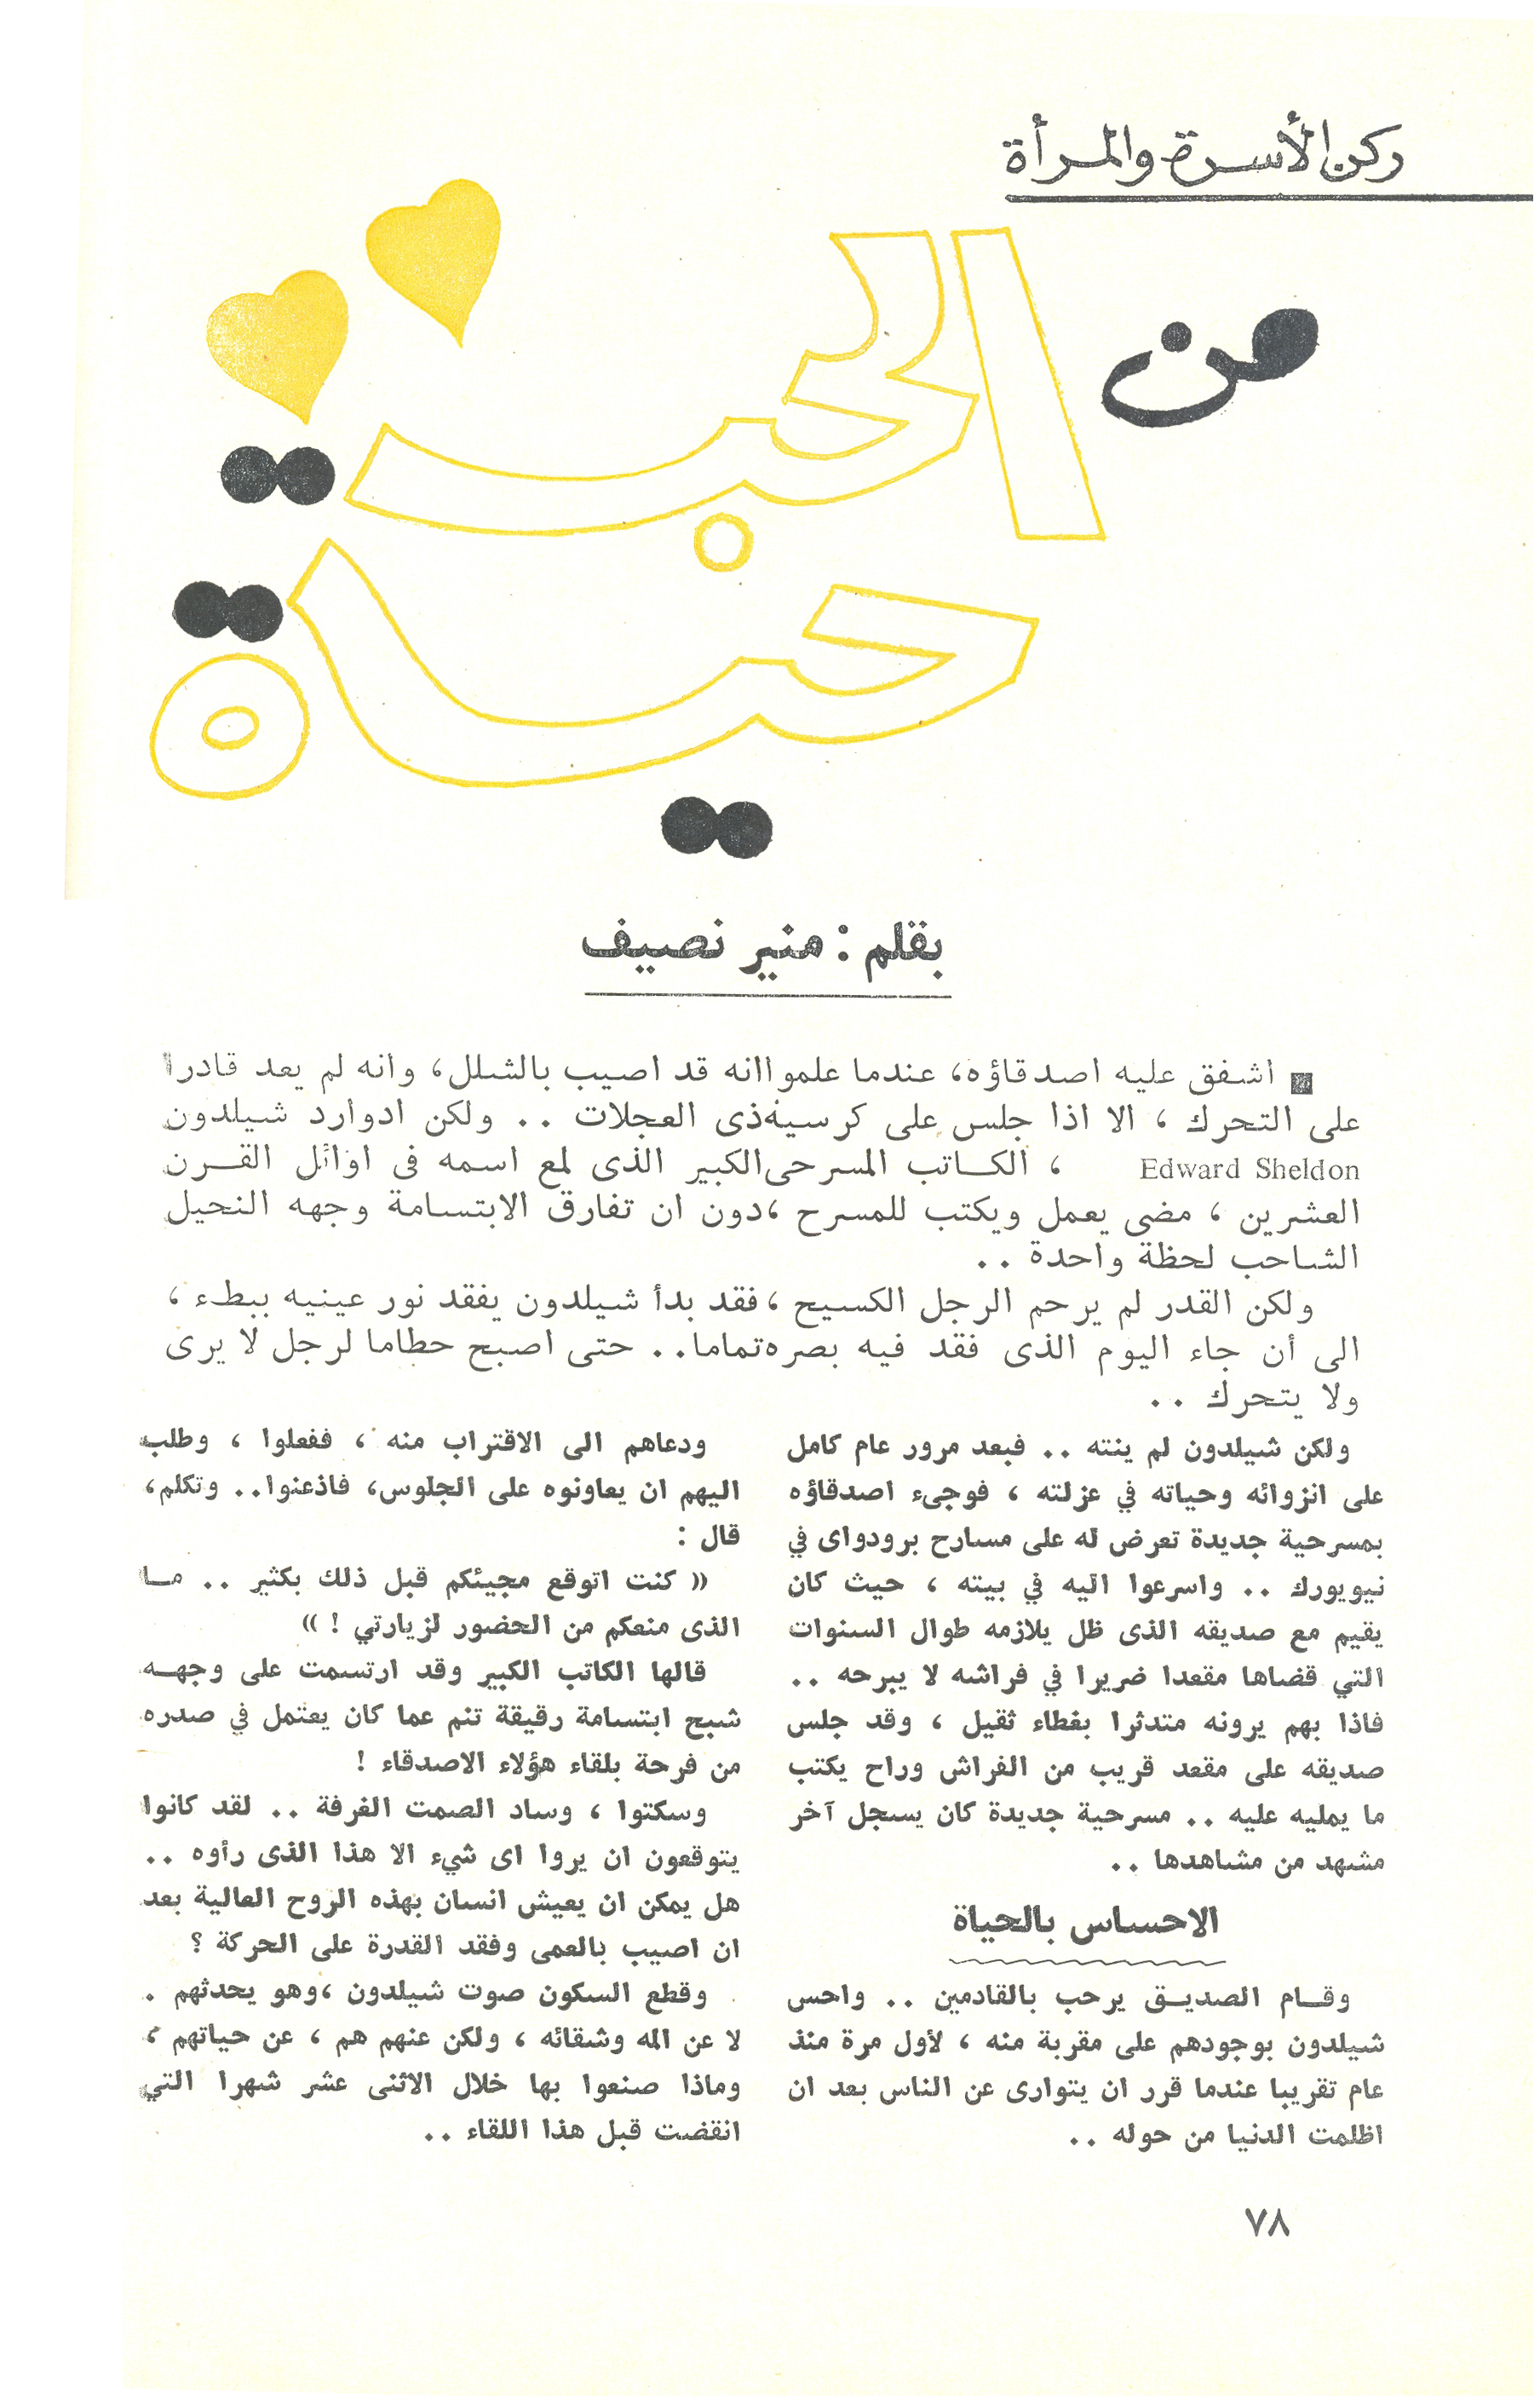 ركن الأسرة والمرأة
من
الحب ..
حياة ..
بقلم : منير نصيف
اشفق عليه اصدقاؤه، عندما علموا انه قد اصيب بالشلل، وانه لم يعد قادرا
على التحرك ، الا اذا جلس على كرسيه ذى العجلات .. ولكن ادوارد شيلدون
Edward Sheldon ، الكاتب المسرحى الكبير الذى لمع اسمه فى اوائل القرن
العشرين ، مضى يعمل ويكتب للمسرح ، دون ان تفارق الابتسامة وجهه النحيل
الشاحب لحظة واحدة ..
ولكن القدر لم يرحم الرجل الكسيح ، فقد بدأ شيلدون يفقد نور عينيه ببطء ،
الى أن جاء اليوم الذى فقد فيه بصره تماما .. حتى اصبح حطاما لرجل لا يرى
ولا يتحرك ..
ولكن شيلدون لم ينته .. فبعد مرور عام كامل
على انزوائه وحياته في عزلته ، فوجىء اصدقاؤه
بمسرحية جديدة تعرض له على مسارح برودواى في
نيويورك .. واسرعوا اليه في بيته ، حيث كان
يقيم مع صديقه الذى ظل يلازمه طوال السنوات
التي قضاها مقعدا ضريرا في فراشه لا يبرحه ..
فاذا بهم يرونه متدثرا بغطاء ثقيل ، وقد جلس
صديقه على مقعد قريب من الفراش وراح يكتب
ما يمليه عليه .. مسرحية جديدة كان يسجل آخر
مشهد من مشاهدها ..
الاحساس بالحياة
وقام الصديق يرحب بالقادمين .. واحس
شيلدون بوجودهم على مقربة منه ، لأول مرة منذ
عام تقريبا عندما قرر ان يتوارى عن الناس بعد ان
اظلمت الدنيا من حوله ..
ودعاهم الى الاقتراب منه ، ففعلوا ، وطلب
اليهم ان يعاونوه على الجلوس، فاذعنوا.. وتكلم،
قال :
(( كنت اتوقع مجيئكم قبل ذلك بكثير .. ما
الذى منعكم من الحضور لزيارتي ! ))
قالها الكاتب الكبير وقد ارتسمت على وجهه
شبح ابتسامة رقيقة تنم عما كان يعتمل في صدره
من فرحة بلقاء هؤلاء الاصدقاء !
وسكتوا ، وساد الصمت الغرفة .. لقد كانوا
يتوقعون ان يروا اى شيء الا هذا الذى رأوه ..
هل يمكن ان يعيش انسان بهذه الروح العالية بعد
ان اصيب بالعمى وفقد القدرة على الحركة ؟
وقطع السكون صوت شيلدون ، وهو يحدثهم .
لا عن المه وشقائه ، ولكن عنهم هم ، عن حياتهم ،
وماذا صنعوا بها خلال الاثنى عشر شهرا التي
انقضت قبل هذا اللقاء ..
٧٨